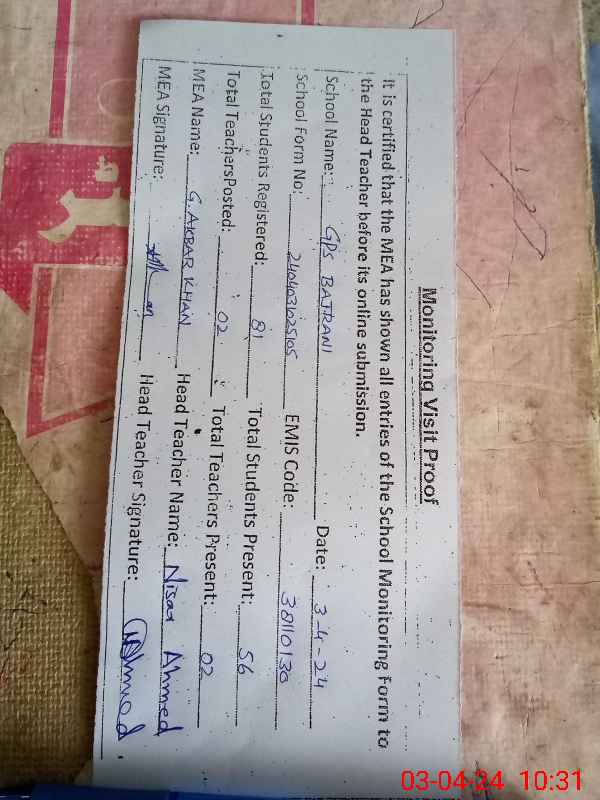 Monitoring Visit Proof
It is certified that the MEA has shown all entries of the School Monitoring Form to
the Head Teacher before its online submission.
School Name: GPS BAJRANI Date: 3-4-24
School Form No: 240403625105 EMIS Code: 38110130
Total Students Registered: 81 Total Students Present: 56
Total TeachersPosted: 02 Total Teachers Present: 02
MEA Name: G. AKBAR KHAN Head Teacher Name: Nisar Ahmed
MEA Signature: Head Teacher Signature: Ahmed
03-04-24 10:31